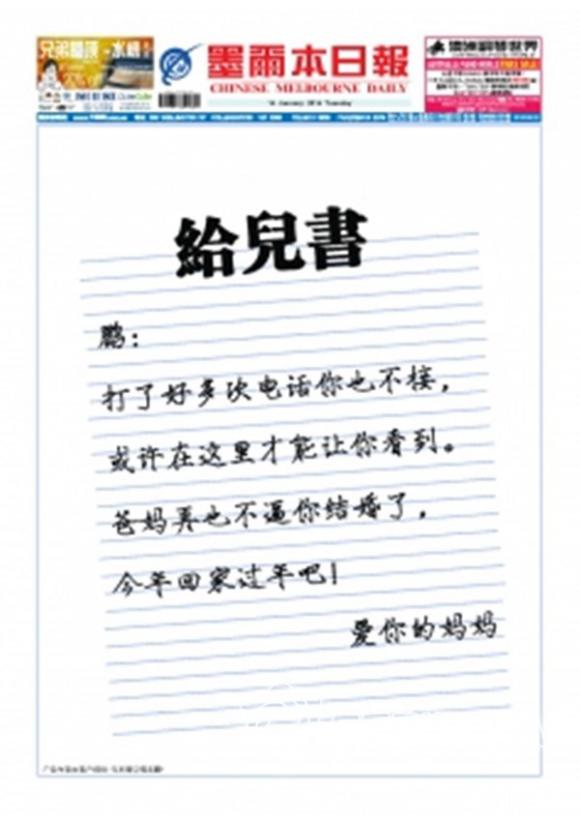 墨爾本日報
CHINESE MELBOURNE DAILY
14 January 2014 Tuesday
給兒書
鹏：
打了好多次电话你也不接，
或许在这里才能让你看到。
爸妈再也不逼你结婚了，
今年回家过年吧！
爱你的妈妈